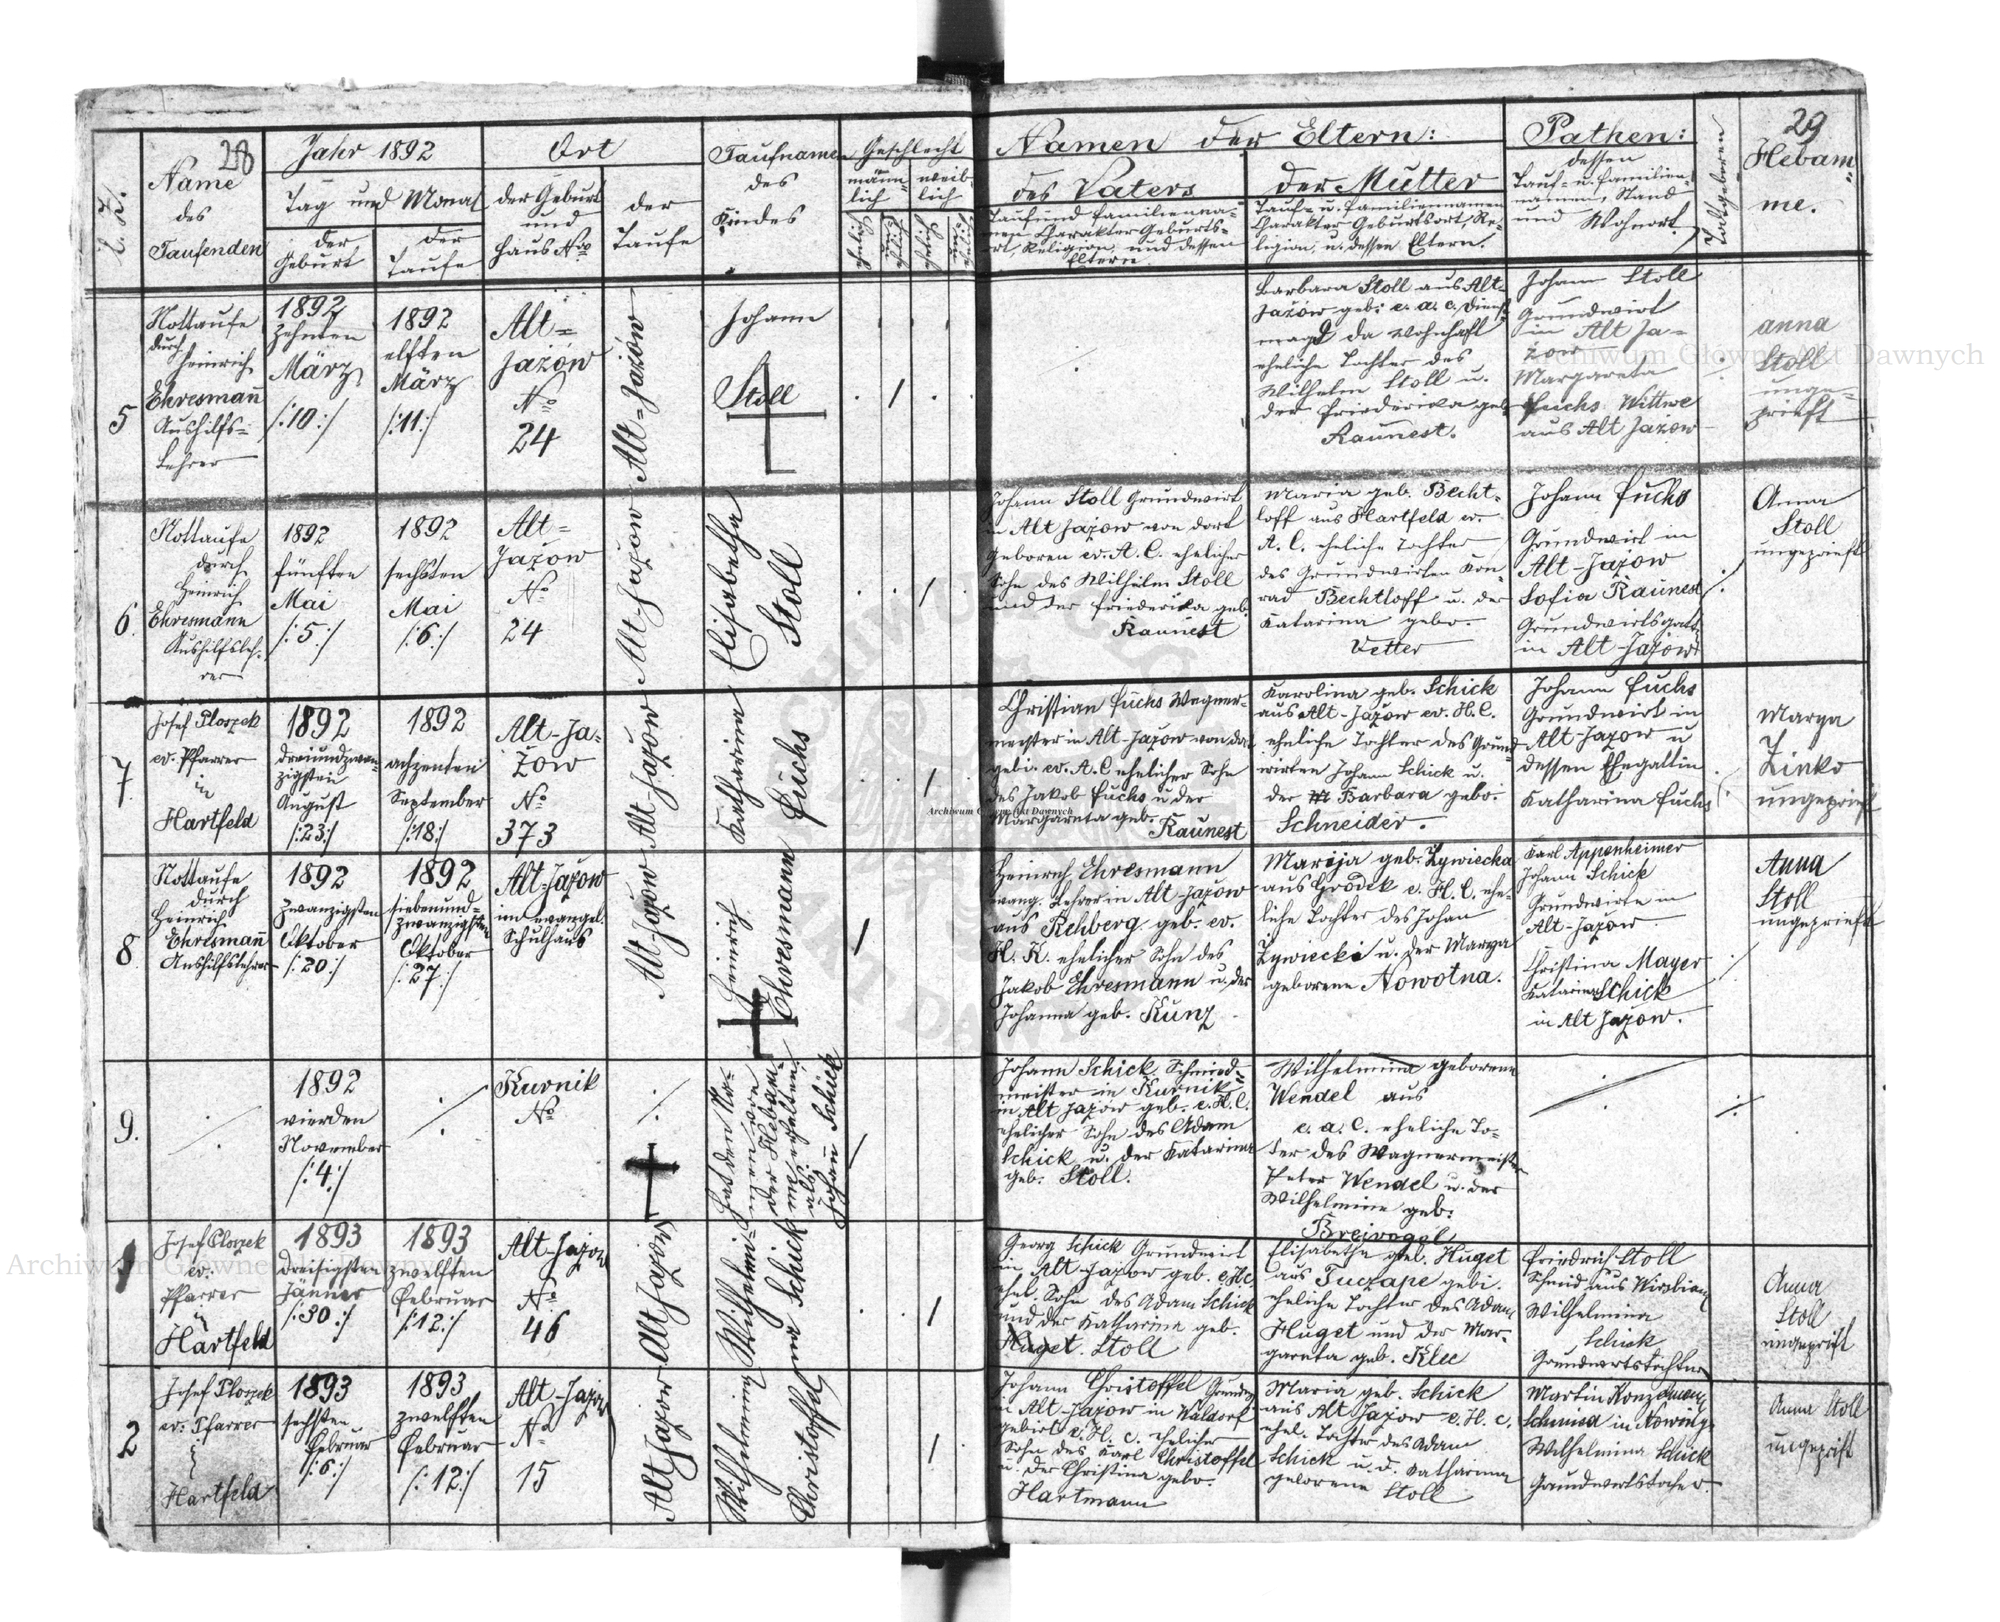 28
l. Z.
Name
des
Taufenden
Jahr 1892
Tag und Monat
der
Geburt
der
Taufe
Ort
der Geburt
und
Haus No
der
Taufe
Taufname
des
Kindes
Geschlecht
männ-
lich
weib-
lich
Namen der Eltern:
des Vaters
Tauf und Familienna-
men Charakter Geburts-
ort, Religion und dessen
Eltern
der Mutter
Tauf- u. Familiennamen
Charakter Geburtsort, Re-
ligion, u. dessen Eltern.
Pathen:
dessen
Tauf- u. Familien-
namen, Stand
und Wohnort.
Todtgeboren
29
Hebam-
me.
5
Nottaufe
durch
Heinrich
Ehresmann
Aushilfs-
Lehrer
1892
Zehnten
März
/:10:/
1892
elften
März
/:11:/
Alt-
Jazów
No
24
Alt-Jazów
Johann
Stoll
Barbara Stoll aus Alt-
Jazów geb: e. a. c. Dienst
magd da wohnhaft
eheliche Tochter des
Wilhelm Stoll u.
der Friederika geb.
Raunest.
Johann Stoll
Grundwirt
in Alt Ja-
zow
Margareta
Fuchs Wittwe
aus Alt Jazow
anna
Stoll
unge-
prieft
6.
Nottaufe
durch
Heinrich
Ehresmann
Aushilfsleh-
rer
1892
fünften
Mai
/:5:/
1892
sechsten
Mai
/:6:/
Alt-
Jazow
No
24
Alt-Jazow
Elisabetha
Stoll
Johann Stoll Grundwirt
in Alt Jazow von dort
Geboren ev. A. C. ehelicher
Sohn des Wilhelm Stoll
und der Friederika geb.
Raunest
Maria geb. Becht-
loff aus Hartfeld ev.
A. C. eheliche Tochter
des Grundwirten Kon-
rad Bechtloff u. der
Katarina gebo.
Vetter
Johann Fuchs
Grundwirt in
Alt-Jazow
Sofia Raunest
Grundwirtsgatt
in Alt-Jazow
Anna
Stoll
ungeprieft
7.
Josef Ploszek
ev. Pfarrer
in
Hartfeld
1892
dreiundzwan-
zigsten
August
/:23:/
1892
achzenten
September
/:18:/
Alt-Ja-
zow
No
373
Alt-Jazow
Katharina
Fuchs
Christian Fuchs Wagner-
meister in Alt-Jazow von dort
geb. ev. A. C ehelicher Sohn
des Jakob Fuchs u der
Margareta geb.
Raunest
Karolina geb. Schick
aus Alt-Jazow ev. H. C.
eheliche Tochter des Grund
wirten Johann Schick u.
der Barbara gebo.
Schneider.
Johann Fuchs
Grundwirt in
Alt-Jazow u
dessen Ehegattin
Katharina Fuchs
Marya
Zinko
ungeprieft
8.
Nottaufe
durch
Heinrich
Ehresmann
Aushilfslehrer
1892
Zwanzigsten
Oktober
/:20:/
1892
siebenund-
zwanzigsten
Oktober
/:27:/
Alt-Jazow
im evangel.
Schulhaus
Alt-Jazow
Heinrich
Ehresmann
Heinrich Ehresmann
evang. Lehrer in Alt-Jazow
aus Rehberg geb. ev.
H. K. ehelicher Sohn des
Jakob Ehresmann u. der
Johanna geb. Kunz
Marija geb. Zywiecka
aus Grodek e. H. C. ehe-
liche Tochter des Johan
Zywiecki u. der Marya
geborene Nowotna.
Karl Appenheimer
Johann Schick
Grundwirte in
Alt-Jazow
Christina Mayer
Katarina Schick
in Alt Jazow.
Anna
Stoll
ungeprieft
9.
1892
vierden
November
/:4:/
Kurnik
No
hat den Na-
men von
der Hebam-
me erhalten
als:
Johann Schick
Johann Schick Schmied-
meister in Kurnik
in Alt Jazow geb. e. H. C.
ehelicher Sohn des Adam
Schick u. der Katarina
geb. Stoll.
Wilhelmina geborene
Wendel aus
e. a. C. eheliche To-
ter des Wagnermeister
Peter Wendel u. der
Wilhelmine geb.
Breivogel
1
Josef Ploszek
ev.
Pfarrer
in
Hartfeld
1893
dreisigsten
Jänner
/:30:/
1893
zwelften
Februar
/:12:/
Alt-Jazow
No
46
Alt Jazow
Wilhelmi-
na Schick
Georg Schick Grundwirt
in Alt-Jazow geb. e. H. C.
ehel. Sohn des Adam Schick
und der Katharina geb.
Huget. Stoll
Elisabetha geb. Huget
aus Tuczape geb.
eheliche Tochter des Adam
Huget und der Mar-
gareta geb. Klee
Friedrich Stoll
Schmid aus
Wilhelmina
Schick
Grundwirtstochter
Anna
Stoll
ungeprift
2
Josef Ploszek
ev. Pfarrer
Hartfeld
1893
sechsten
Februar
/:6:/
1893
zwelften
Februar
/:12:/
Alt-Jazow
No
15
Alt Jazow
Wilhelmina
Christoffel
Johann Christoffel Grundw
in Alt-Jazow in Waldorf
gebirt e. H. C. ehelicher
Sohn des Karl Christoffel
u. der Christina gebo.
Hartmann
Maria geb. Schick
aus Alt Jazow e. H. C.
ehel. Tochter des Adam
Schick u. d. Katharina
geborene Stoll
Martin
Schmied in
Wilhelmina Schick
Grundwirtstocher
Anna Stoll
ungeprift
Archiwum Główne Akt Dawnych
Archiwum Główne Akt Dawnych
Archiwum Główne Akt Dawnych